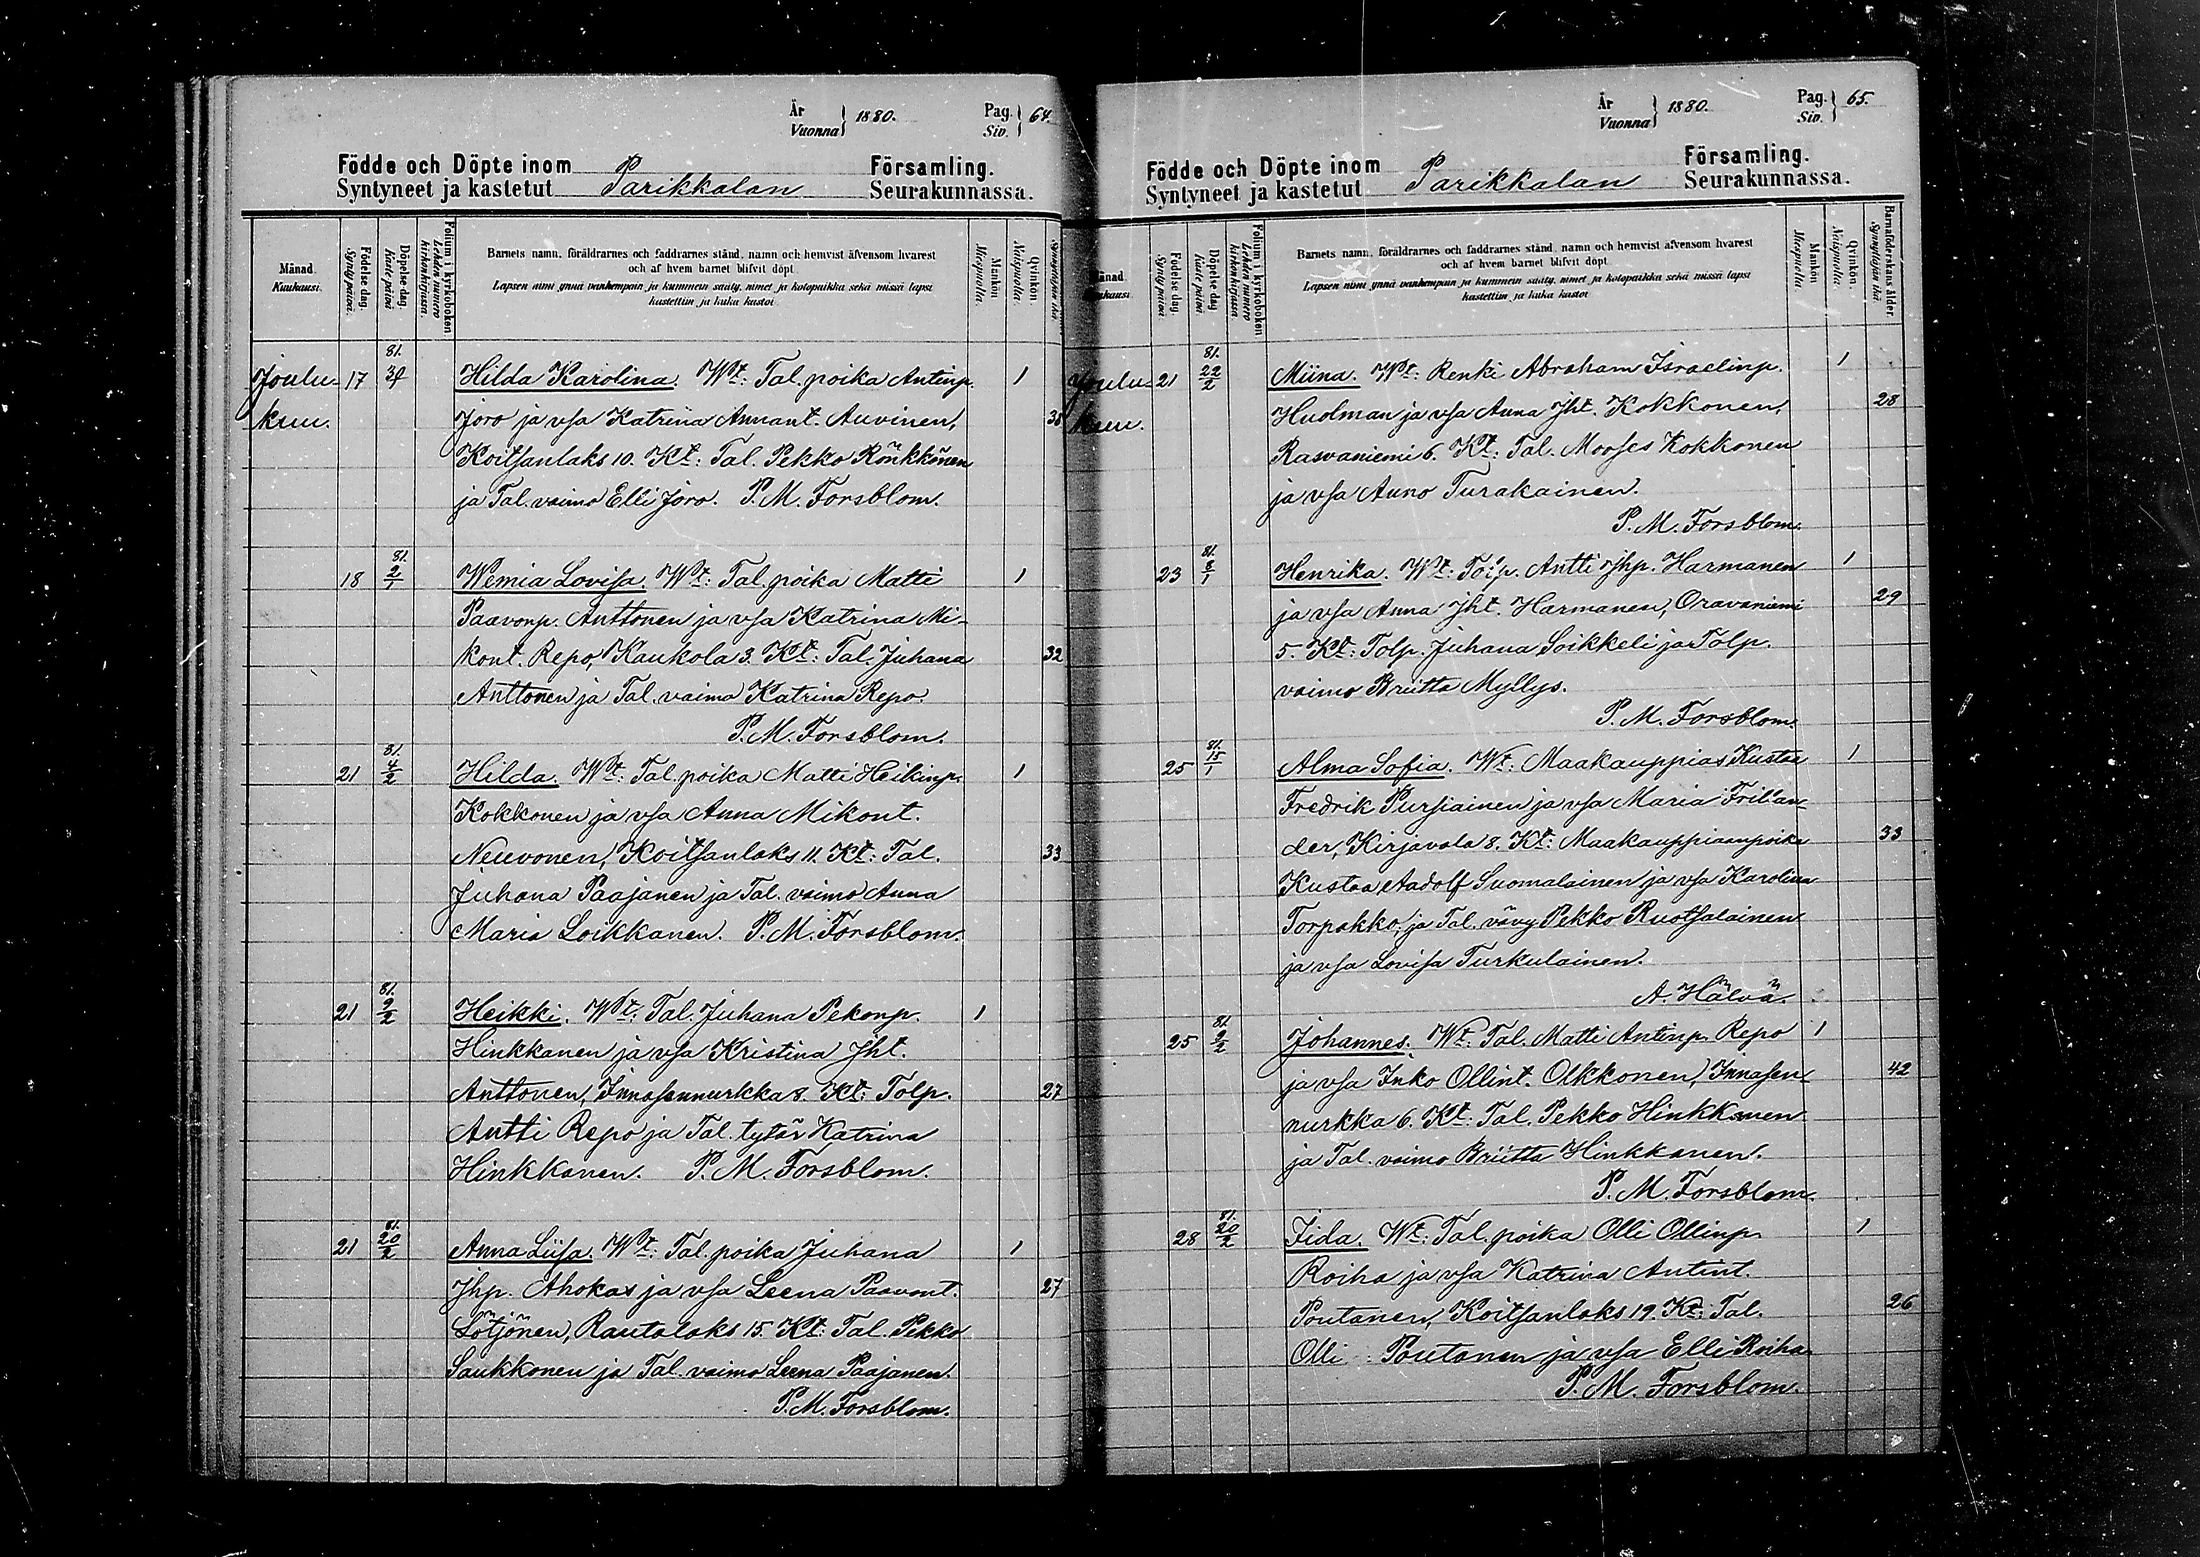 År
Vuonna } 1880.
Pag.
Siv. } 64.
Födde och Döpte inom
Syntyneet ja kastetut Parikkalan
Församling.
Seurakunnassa.
Månad. Kuukausi.
Födelse dag. Synty päivä.
Döpelse dag. Kaste päivä
Folium i kyrkoboken Lehden numero kirkonkirjassa.
Barnets namn, föräldrarnes och faddrarnes stånd, namn och hemvist äfvensom hvarest
och af hvem barnet blifvit döpt.
Lapsen nimi ynnä vanhempain ja kummein sääty, nimet ja kotopaikka sekä missä lapsi
kastettiin, ja kuka kastoi
Mankön. Miespuolia.
Qvinkön. Naispuolia.
Joulu- 17 81. 3/1 Hilda Karolina. Wt: Tal. poika Antinp. 1
kuu. Joro ja vsa Katrina Annant. Auvinen, 38
Koitsanlaks 10. Kt: Tal. Pekko Rönkkönen
ja Tal. vaimo Elli Joro. P. M. Forsblom.
18 81. 2/1 Wemia Lovisa. Wt: Tal. poika Matti 1
Paavonp. Anttonen ja vsa Katrina Mi-
kont. Repo, Kaukola 3. Kt: Tal. Juhana 32
Anttonen ja Tal. vaimo Katrina Repo.
P. M. Forsblom.
21 81. 4/2 Hilda. Wt: Tal. poika Matti Heikinp. 1
Kokkonen ja vsa Anna Mikont.
Neuvonen, Koitsanlaks 11. Kt: Tal. 33
Juhana Paajanen ja Tal. vaimo Anna
Maria Loikkanen. P. M. Forsblom.
21 81. 9/2 Heikki. Wt: Tal. Juhana Pekonp. 1
Hinkkanen ja vsa Kristina Jht.
Anttonen, Innasennurkka 8. Kt: Tolp. 27
Antti Repo ja Tal. tytär Katrina
Hinkkanen. P. M. Forsblom.
21 81. 20/2 Anna Liisa. Wt: Tal. poika Juhana 1
Jhp. Ahokas ja vsa Leena Paavont. 27
Lötjönen, Rautalaks 15. Kt: Tal. Pekko
Saukkonen ja Tal. vaimo Leena Paajanen.
P. M. Forsblom.
År
Vuonna } 1880.
Pag.
Siv. } 65.
Födde och Döpte inom
Syntyneet ja kastetut Parikkalan
Församling.
Seurakunnassa.
Födelse dag. Synty päivä
Döpelse dag Kaste päivä
Folium i kyrkoboken Lehden numero kirkonkirjassa
Barnets namn, föräldrarnes och faddrarnes stånd, namn och hemvist äfvensom hvarest
och af hvem barnet blifvit döpt.
Lapsen nimi ynnä vanhempain ja kummein sääty, nimet ja kotopaikka sekä missä lapsi
kastettiin, ja kuka kastoi
Mankön Miespuolia
Qvinkön. Naispuolia.
Barnaföderskans ålder. Synnyttäjän ikä
Joulu- 21 81. 22/2 Miina. Wt: Renki Abraham Israelinp. 1
kuu. Huolman ja vsa Anna Jht. Kokkonen, 28
Rasvaniemi 6. Kt: Tal. Mooses Kokkonen
ja vsa Auno Turakainen.
P. M. Forsblom.
23 81. 8/1 Henrika. Wt: Tolp. Antti Jhp. Harmanen 1
ja vsa Anna Jht. Harmanen, Oravaniemi 29
5. Kt: Tolp. Juhana Soikkeli ja Tolp.
vaimo Briitta Myllys.
P. M. Forsblom.
25 81. 15/1 Alma Sofia. Wt: Maakauppias Kustaa 1
Fredrik Pursiainen ja vsa Maria Frilan-
der, Kirjavala 8. Kt: Maakauppiaanpoika 33
Kustaa Aadolf Suomalainen ja vsa Karolina
Torpakko, ja Tal. vävy Pekko Ruotsalainen
ja vsa Lovisa Turkulainen.
A. Hälvä.
25 81. 9/2 Johannes. Wt: Tal. Matti Antinp. Repo 1
ja vsa Inko Ollint. Olkkonen, Innasen- 42
nurkka 6. Kt: Tal. Pekko Hinkkanen
ja Tal. vaimo Briitta Hinkkanen.
P. M. Forsblom.
28 81. 20/2 Iida. Wt: Tal. poika Olli Ollinp. 1
Roiha ja vsa Katrina Antint.
Poutanen, Koitsanlaks 19. Kt: Tal. 26
Olli Poutanen ja vsa Elli Roiha.
P. M. Forsblom.